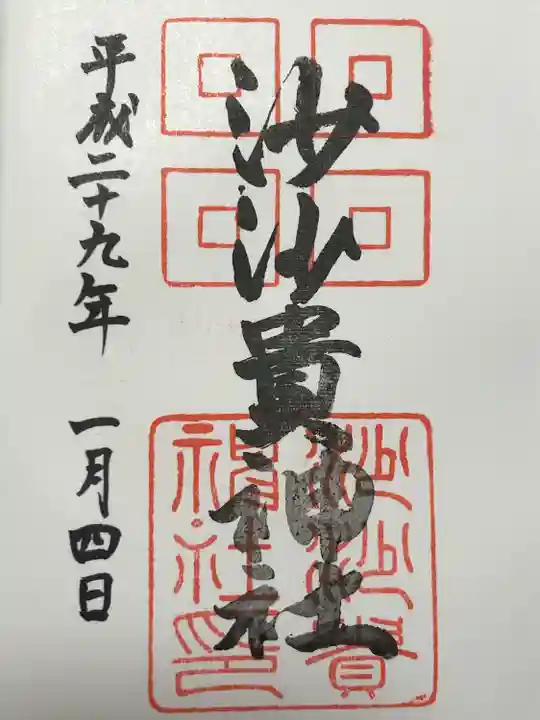 沙沙貴神社
平成二十九年 一月四日
沙沙貴
神社印